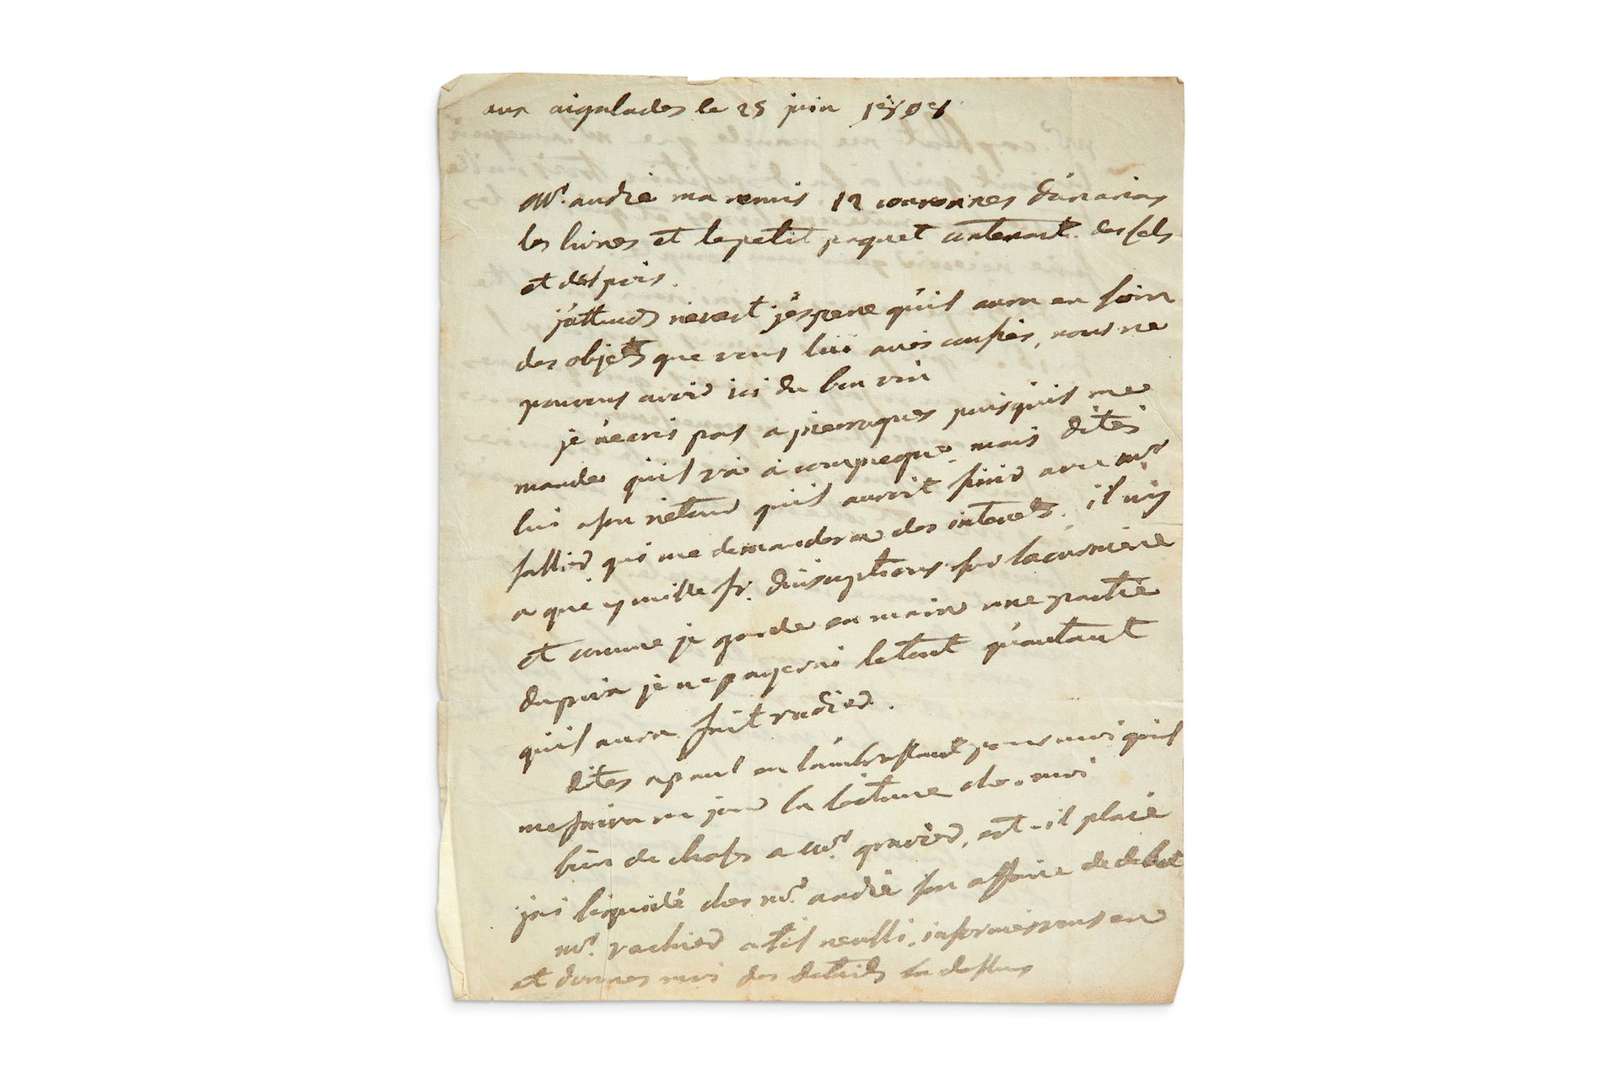 aux aigalades le 25 juin
Mr. audié ma remis 12 couronnes d'ananas
les livres et le petit paquet contenant des sels
et des pois.
j'attends nevert j'espere qu'il aura eu soin
des objets que vous lui avés confiés, nous ne
pouvons avoir ici du bon vin
je n'ecris pas a jieoruques puisqu'il me
mande qu'il va à compiegne, mais dites
lui a son retour qu'il auroit finir avec mr
sallior qui me demandera des interets. il ny
a que 4 mille fr. d'inscriptions sur la derniere
et comme je garde en main une partie
du prix je ne payerai le tout qu'autant
qu'il aura fait radier.
dites a paul en l'embrassant pour moi qu'il
me faira un jour la lecture de moi
bien de choses a Mr. gravier, est-il placé
j'ai liquidé chez mr. audié son affaire de
mr. vachier a til informés vous en
et donnes moi des details la dessus